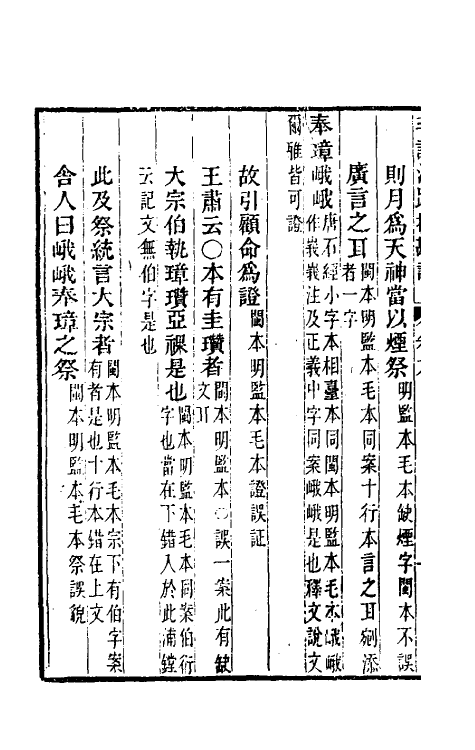 則月爲天神當以煙祭明監本毛本缺煙字閩本不誤
廣言之耳閩本明監本毛本同案十行本言之耳剜添
者一字
奉璋峨峨唐石經小字本相臺本同閩本明監本毛本峨峨
作峩峩注及正義中字同案峨峨是也釋文說文
爾雅皆可證
故引顧命爲證閩本明監本毛本證誤証
王肅云〇本有圭瓚者閩本明監本〇誤一案此有缺
文耳
大宗伯執璋瓚亞祼是也閩本明監本毛本同案伯衍
字也當在下錯入於此浦鏜
云記文無伯字是也
此及祭統言大宗者閩本明監本毛本宗下有伯字案
有者是也十行本錯在上文
舍人曰峨峨奉璋之祭閩本明監本毛本祭誤貌